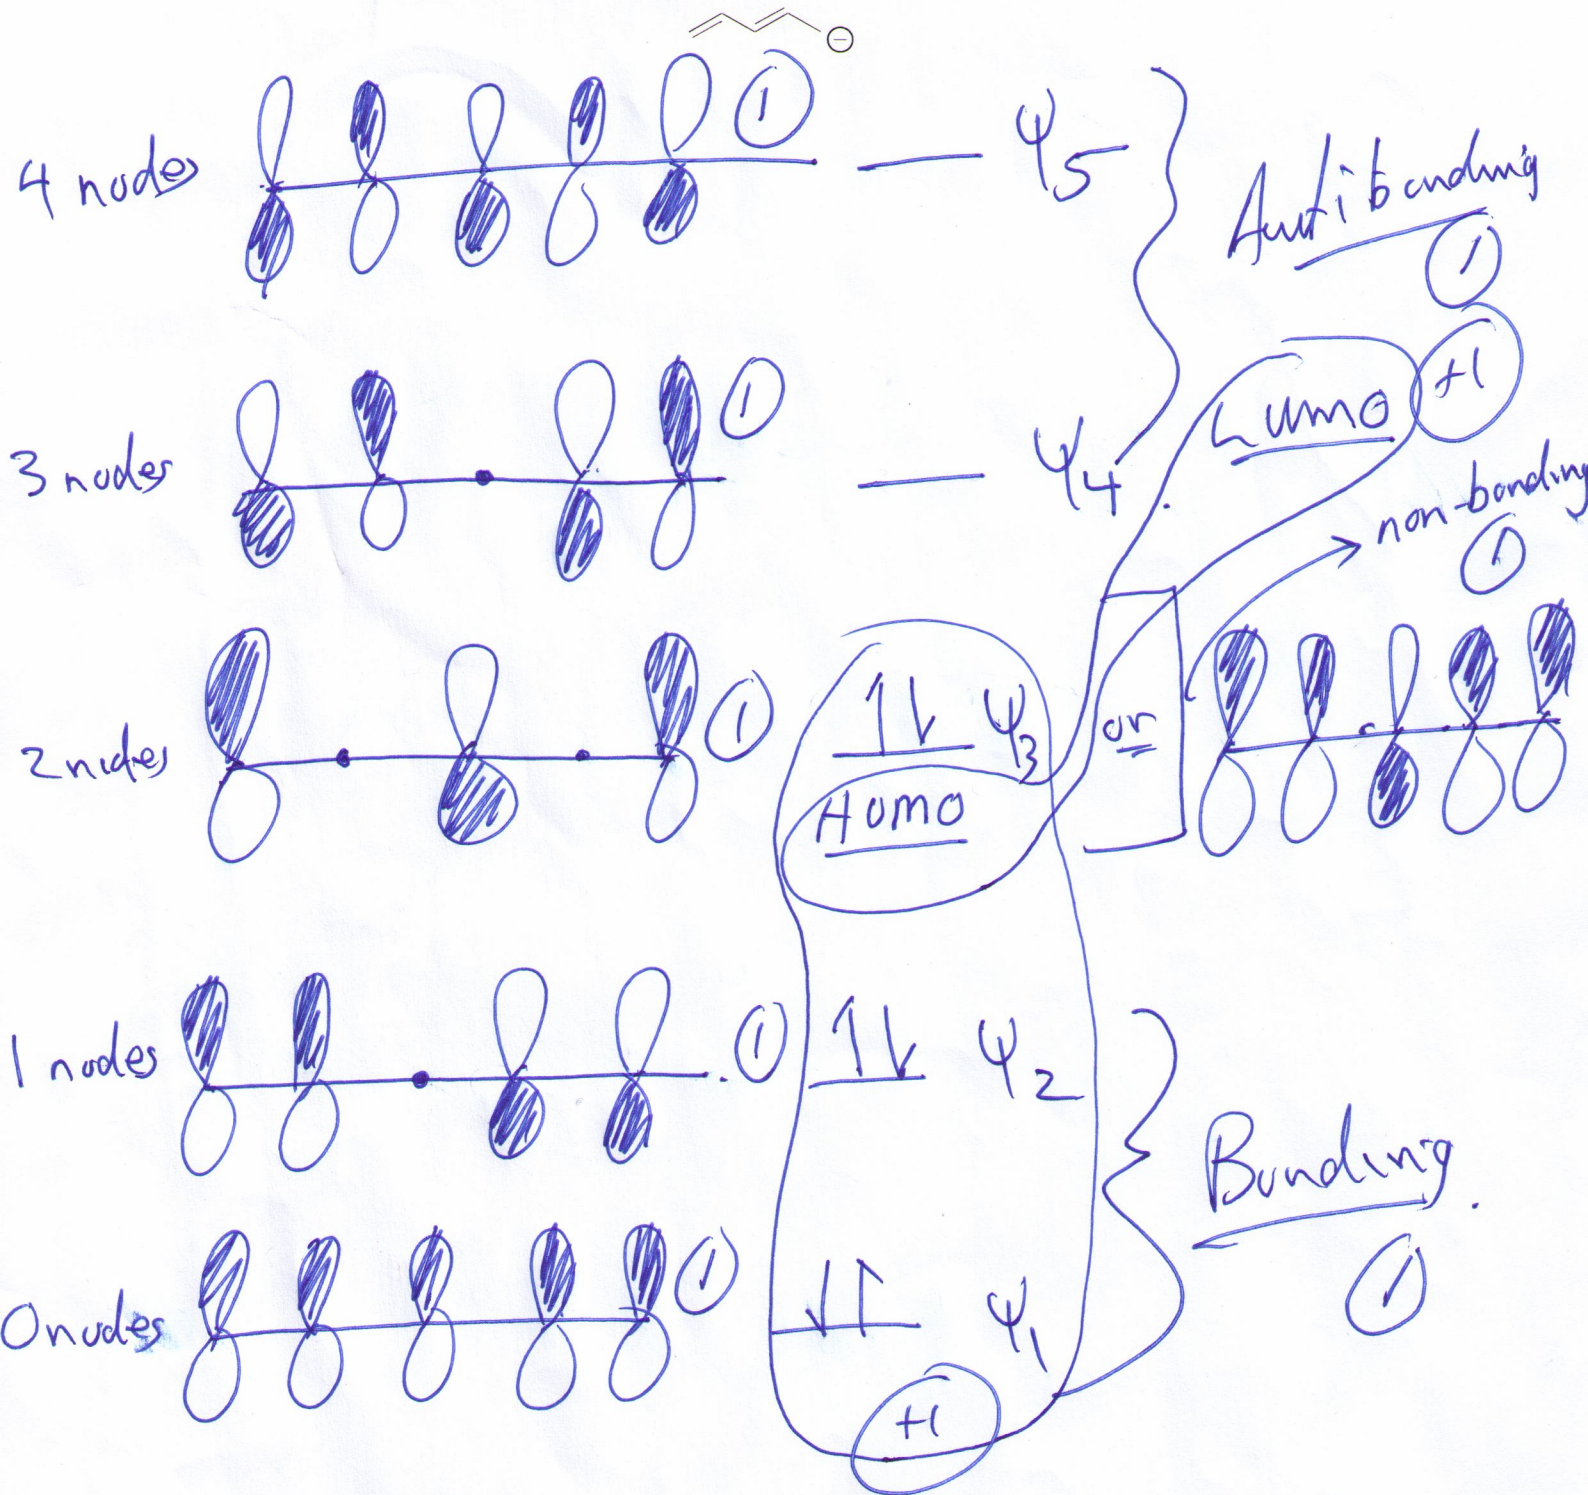 ⊖
4 nodes ① ψ5
Antibonding
①
3 nodes ① ψ4
Lumo +1
non-bonding
①
2 nodes ① ↿⇂ ψ3
or
Homo
1 nodes ① ↿⇂ ψ2
Bonding.
①
0 nodes ① ⇃↾ ψ1
+1